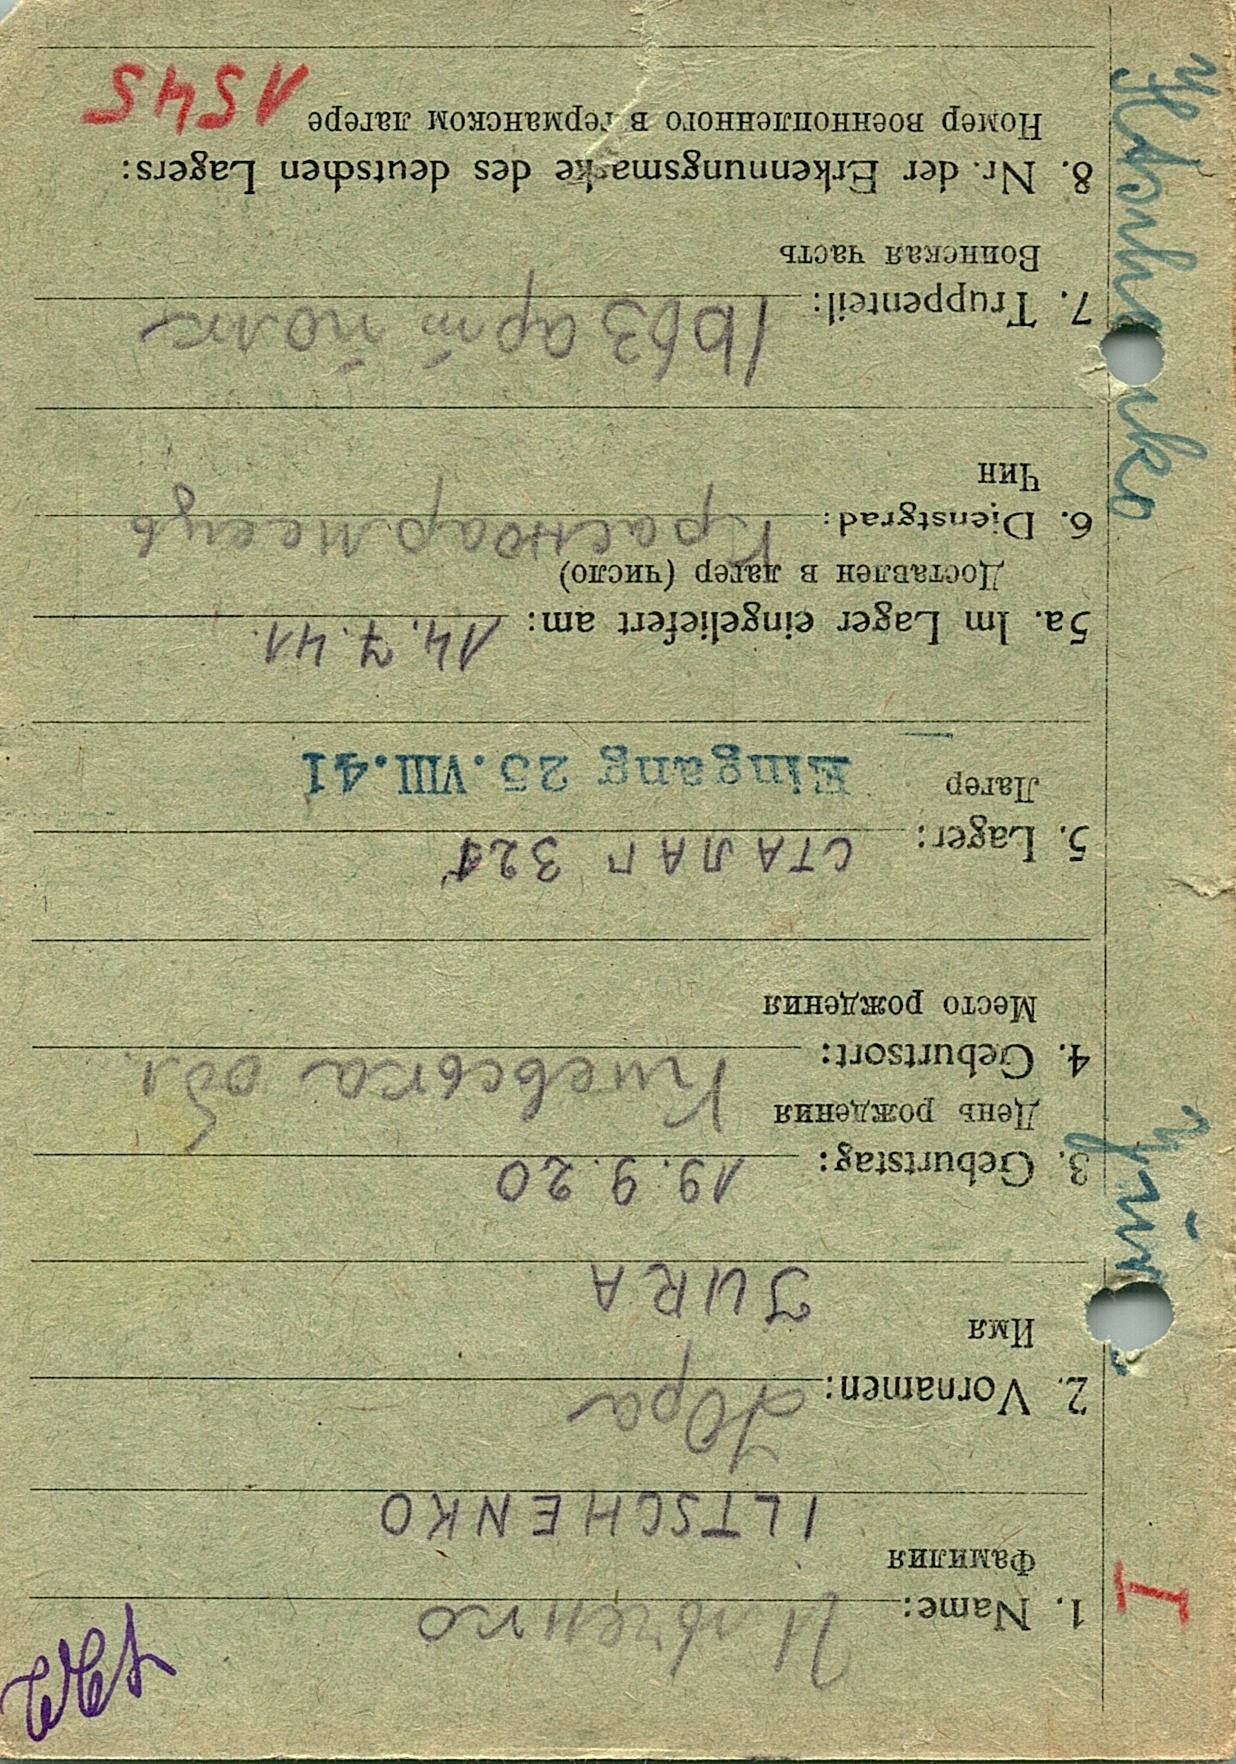 I
1. Name: Ильченко
Фамилия
ILTSCHENKO
2. Vornamen: Юра
Имя
JURA
3. Geburtstag: 19.9.20
День рождения
4. Geburtsort: Киевська обл.
Место рождения
5. Lager: СТАЛАГ 321
Лагер
Eingang 25.VIII.41
5a. Im Lager eingeliefert am: 14.7.41.
Доставлен в лагер (число)
6. Dienstgrad: Красноармеець
Чин
7. Truppenteil: арт. полк
Воинская часть
8. Nr. der Erkennungsmarke des deutschen Lagers:
Номер военнопленного в германском лагере 1545